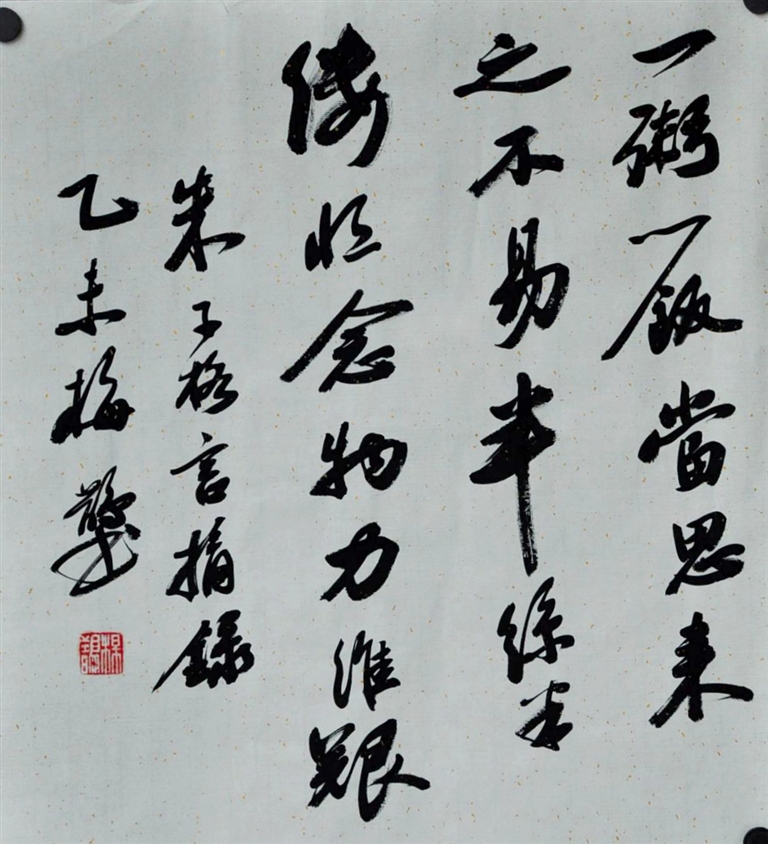 一粥一飯當思来
之不易半絲半
縷恒念物力維艱
朱子格言摘錄
乙未梅